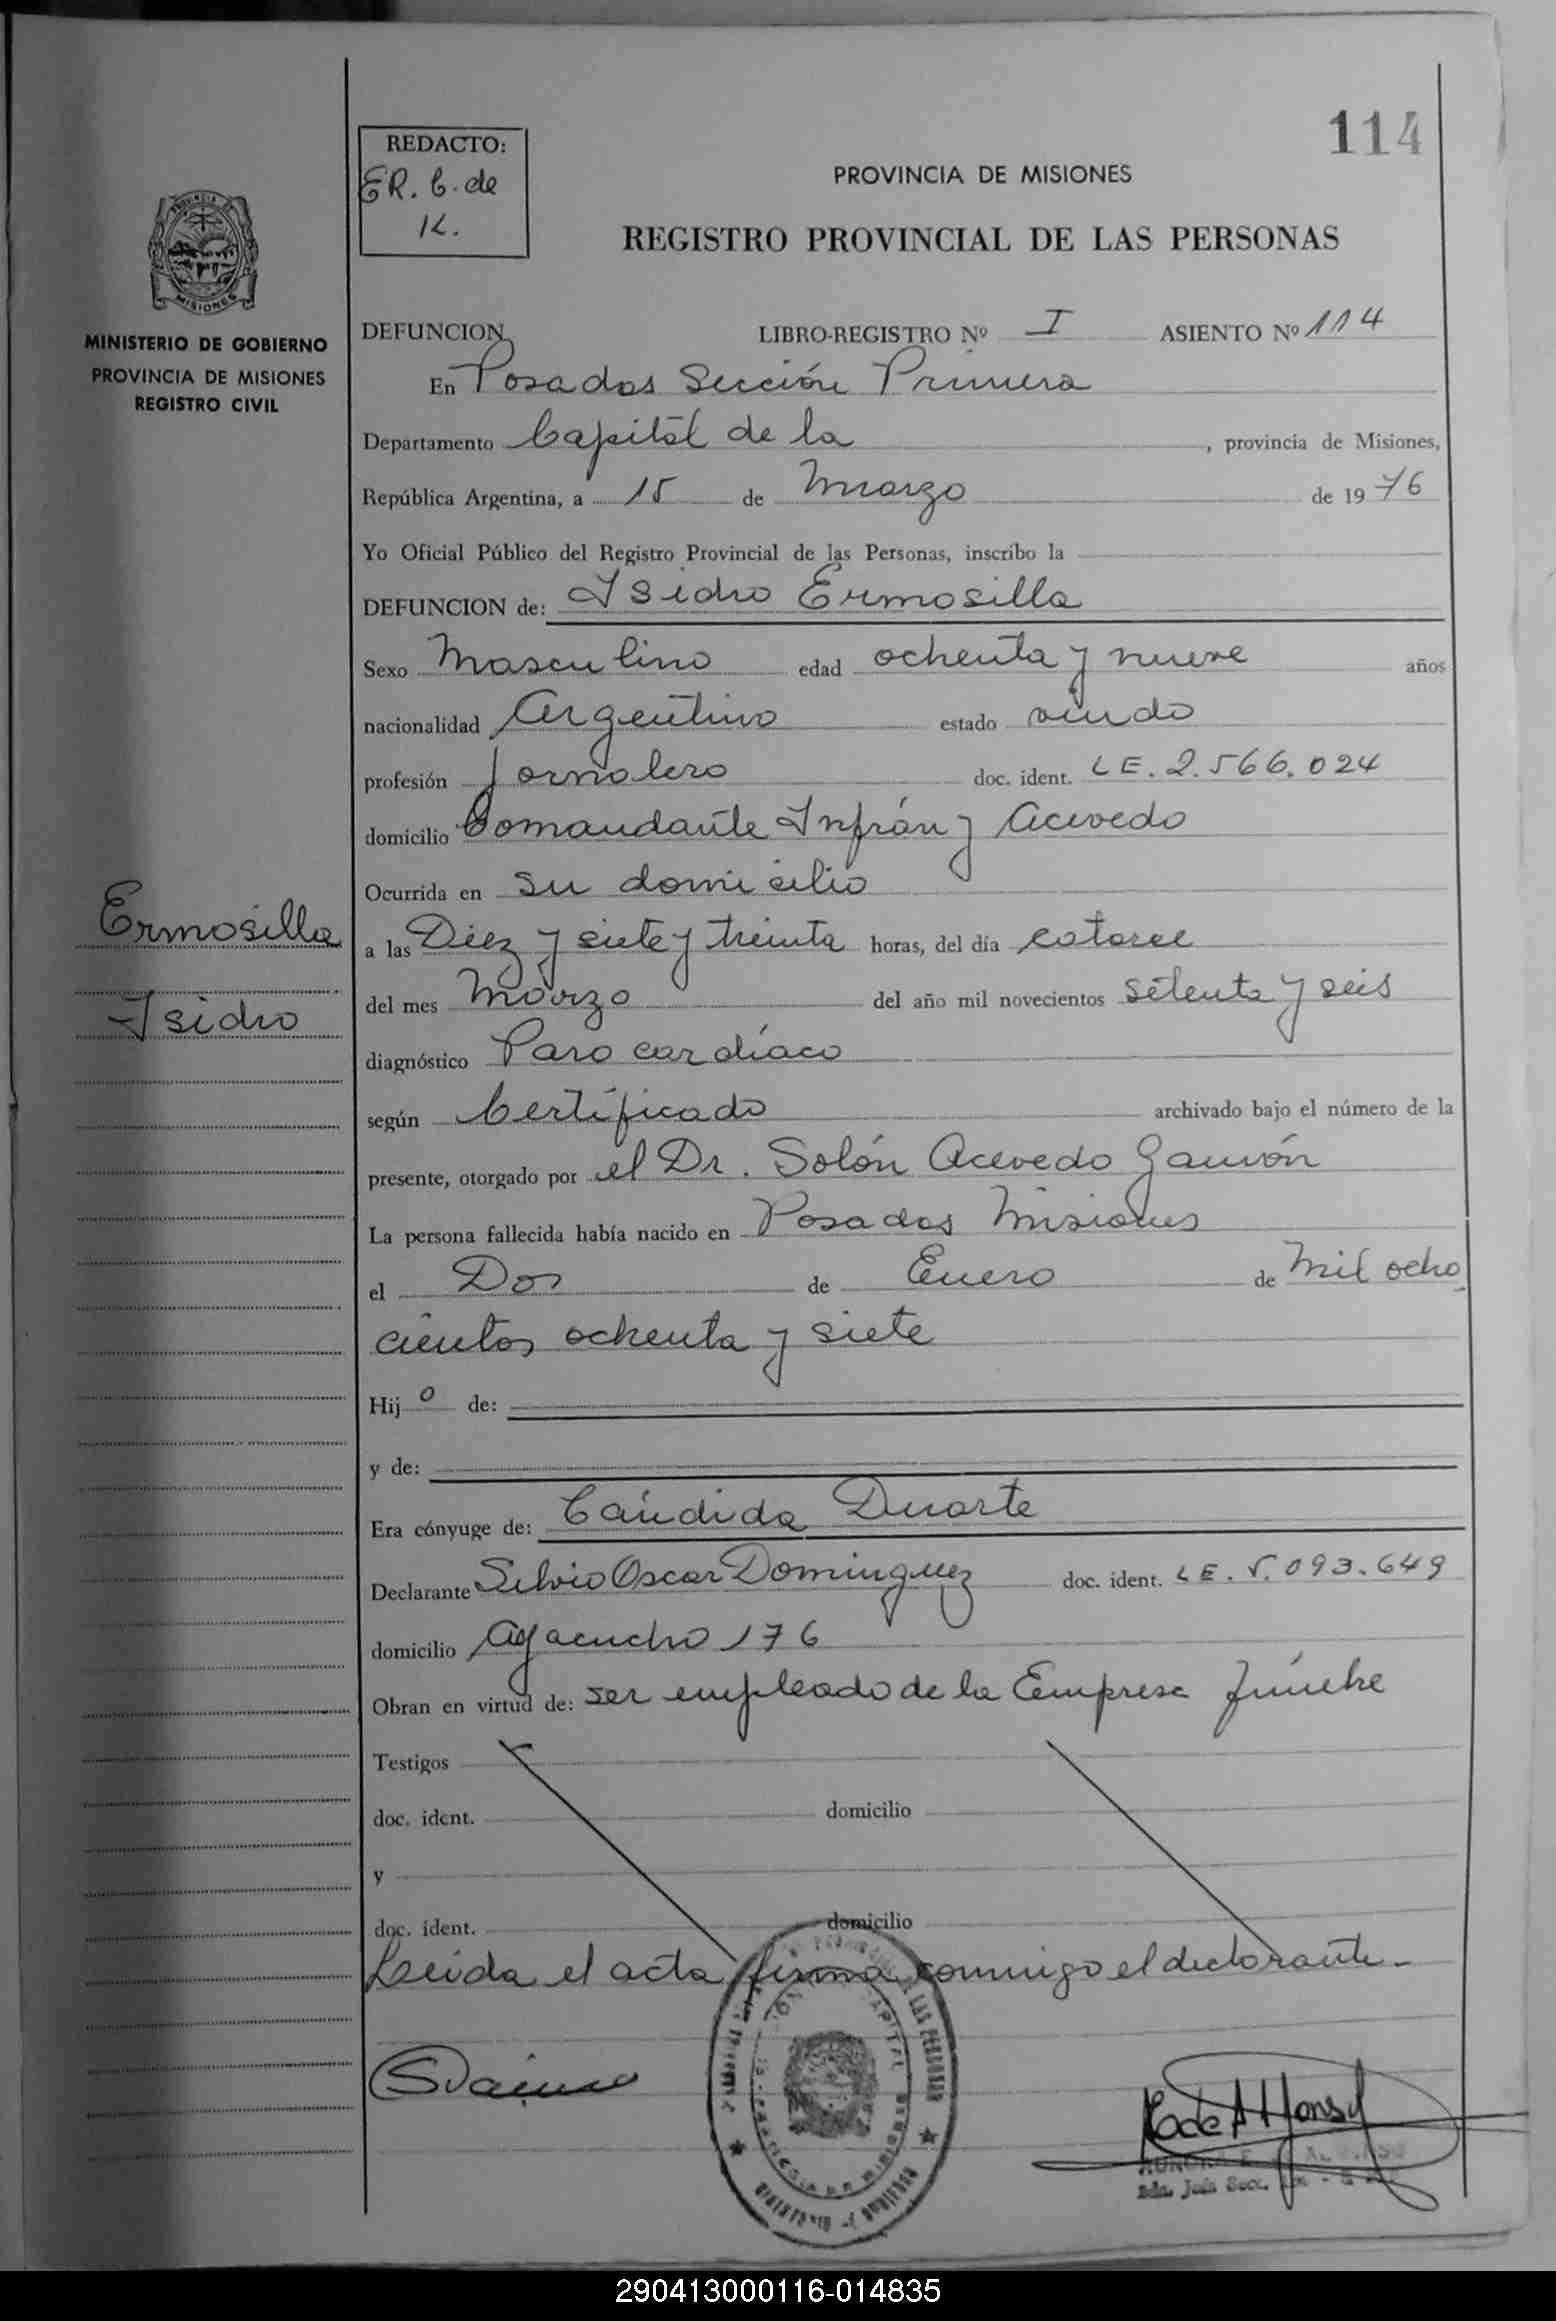 114
REDACTO:
ER. C. de
K.
PROVINCIA DE MISIONES
REGISTRO PROVINCIAL DE LAS PERSONAS
PROVINCIA DE
MISIONES
MINISTERIO DE GOBIERNO
PROVINCIA DE MISIONES
REGISTRO CIVIL
DEFUNCION LIBRO-REGISTRO Nº I ASIENTO Nº 114
En Posadas Sección Primera
Departamento Capital de la , provincia de Misiones,
República Argentina, a 15 de Marzo de 1976
Yo Oficial Público del Registro Provincial de las Personas, inscribo la
DEFUNCION de: Isidro Ermosilla
Sexo Masculino edad ochenta y nueve años
nacionalidad Argentino estado viudo
profesión Jornalero doc. ident. LE. 2.566.024
domicilio Comandante Infrán y Acevedo
Ocurrida en su domicilio
Ermosilla
Isidro
a las Diez y siete y treinta horas, del día catorce
del mes Marzo del año mil novecientos setenta y seis
diagnóstico Paro cardíaco
según Certificado archivado bajo el número de la
presente, otorgado por el Dr. Solón Acevedo Gamón
La persona fallecida había nacido en Posadas Misiones
el Dos de Enero de Mil ocho
cientos ochenta y siete
Hijo de:
y de:
Era cónyuge de: Cándida Duarte
Declarante Silvio Oscar Dominguez doc. ident. LE. 5.093.649
domicilio Ayacucho 176
Obran en virtud de: ser empleado de la Empresa fúnebre
Testigos
doc. ident. domicilio
y
doc. ident. domicilio
Leída el acta firma conmigo el declarante-
LAS PERSONAS
290413000116-014835